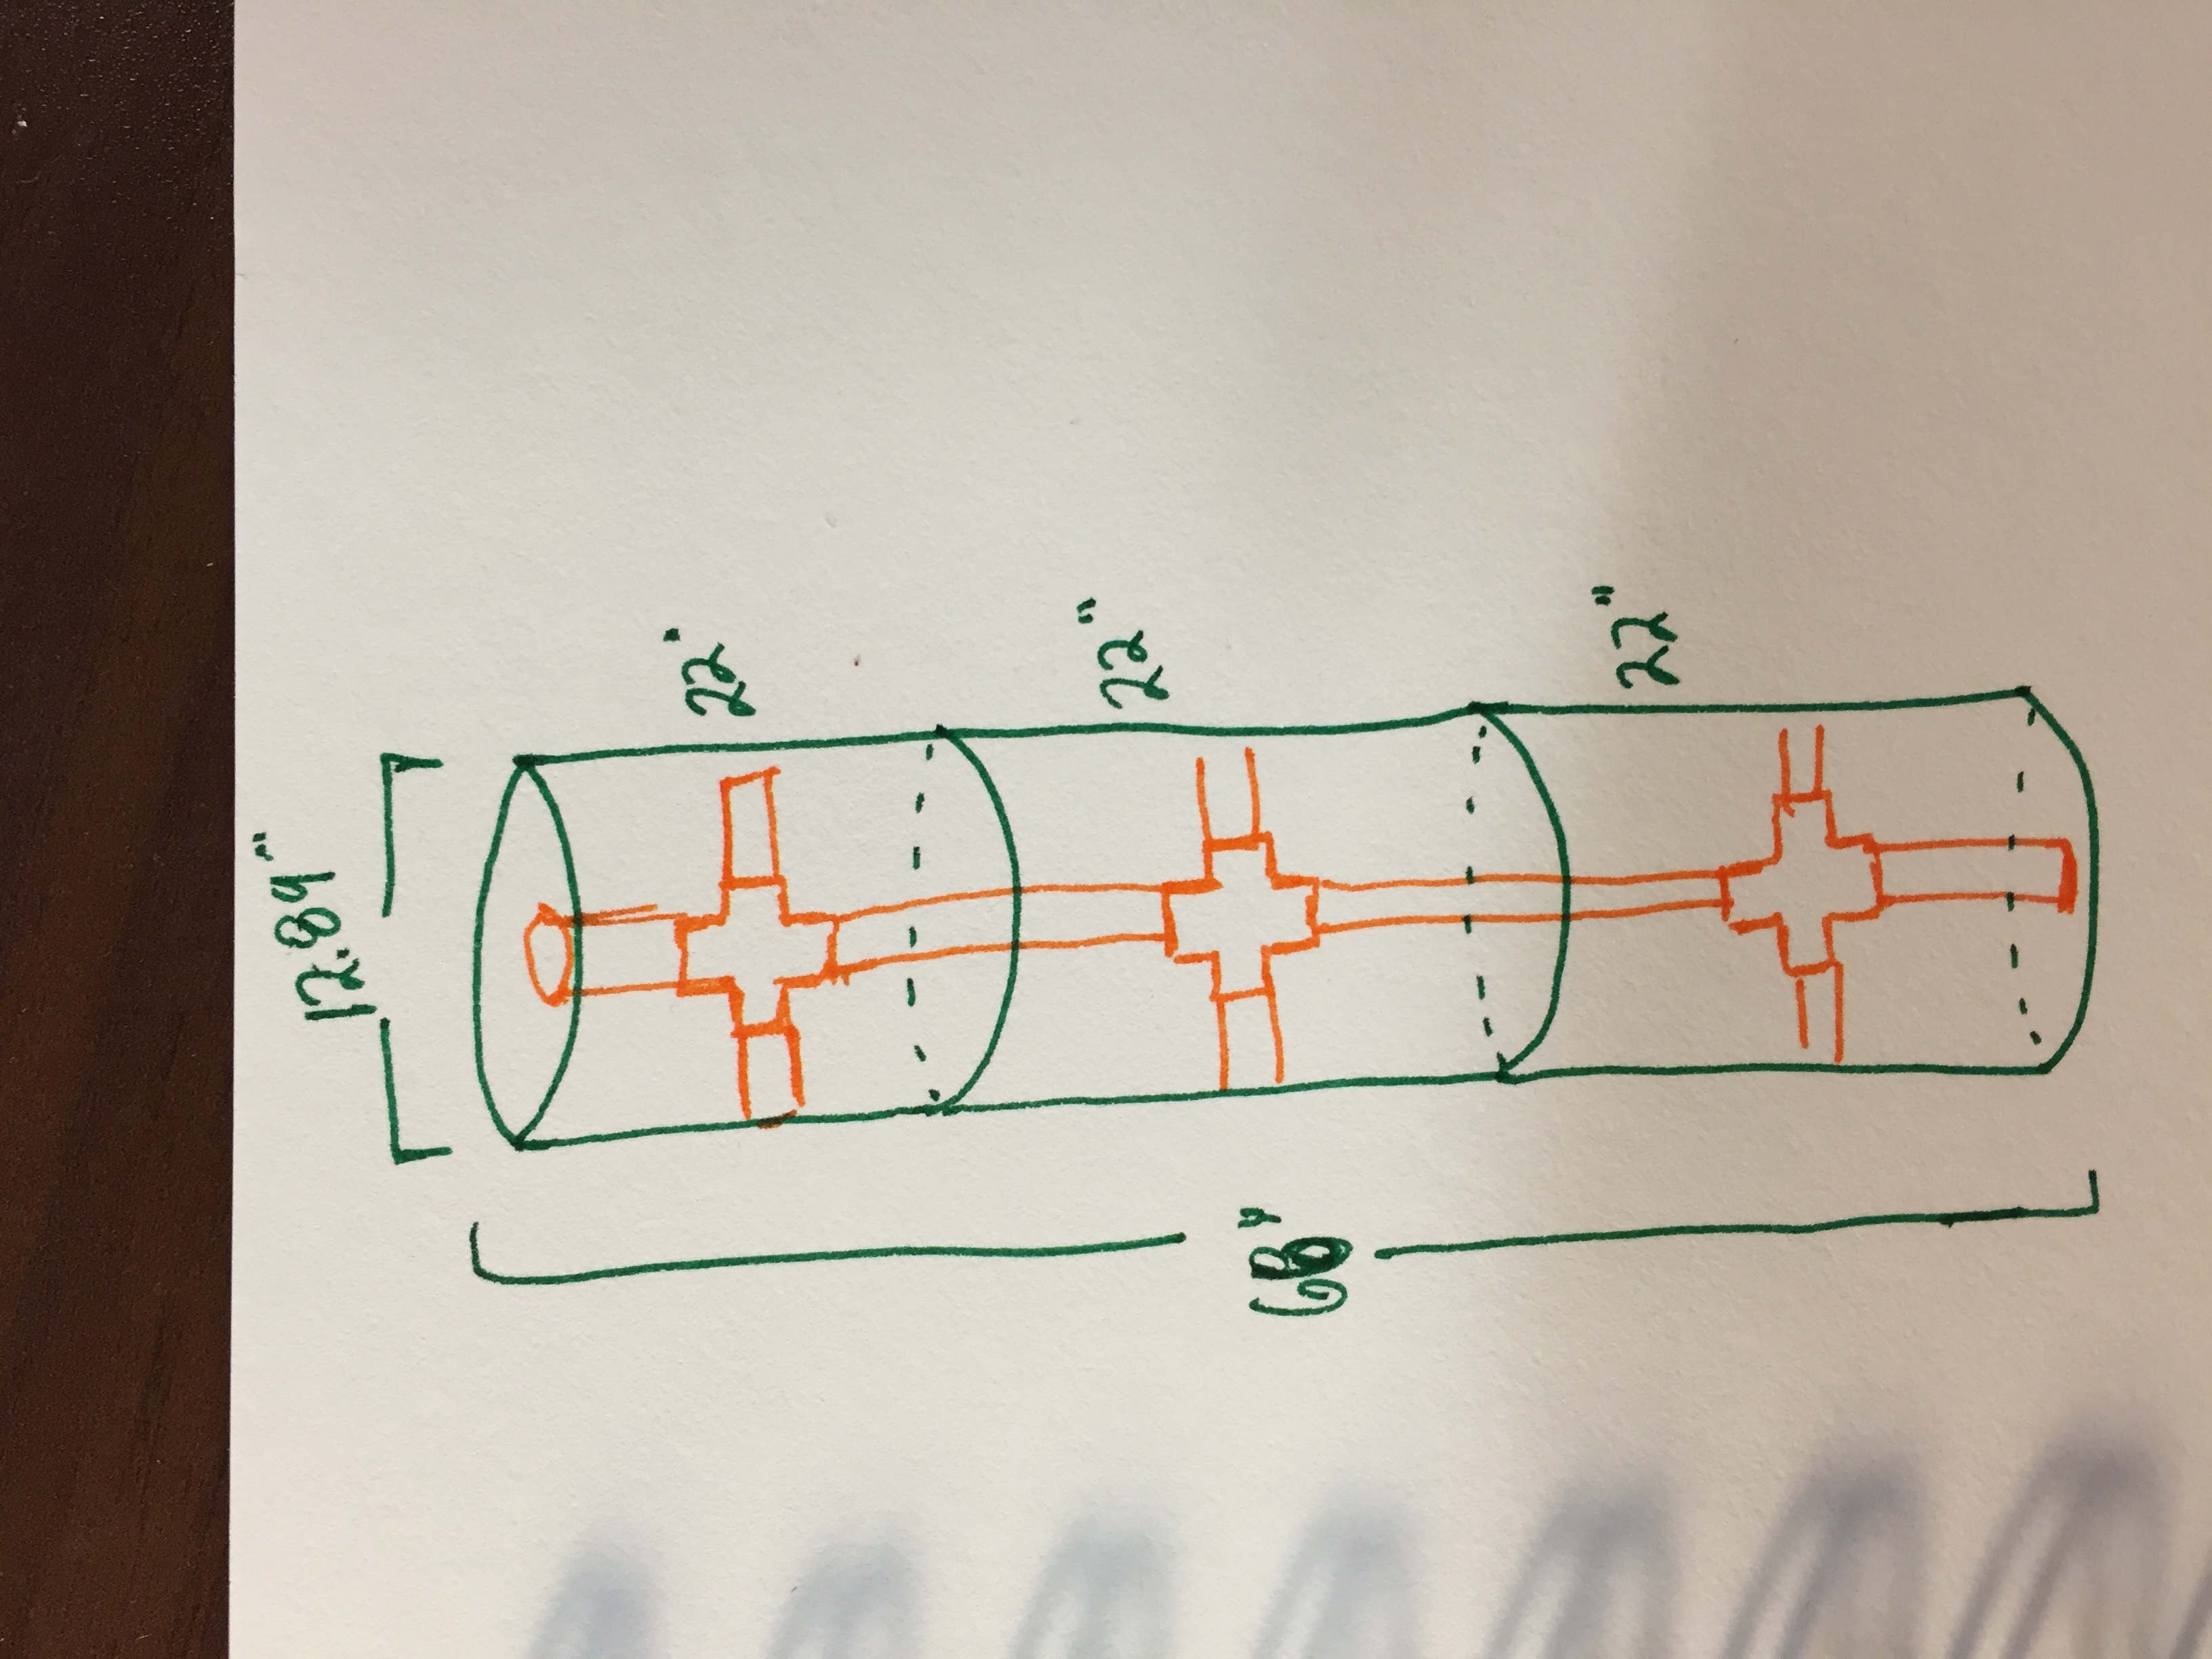 12.89"
22"
22"
68"
22"